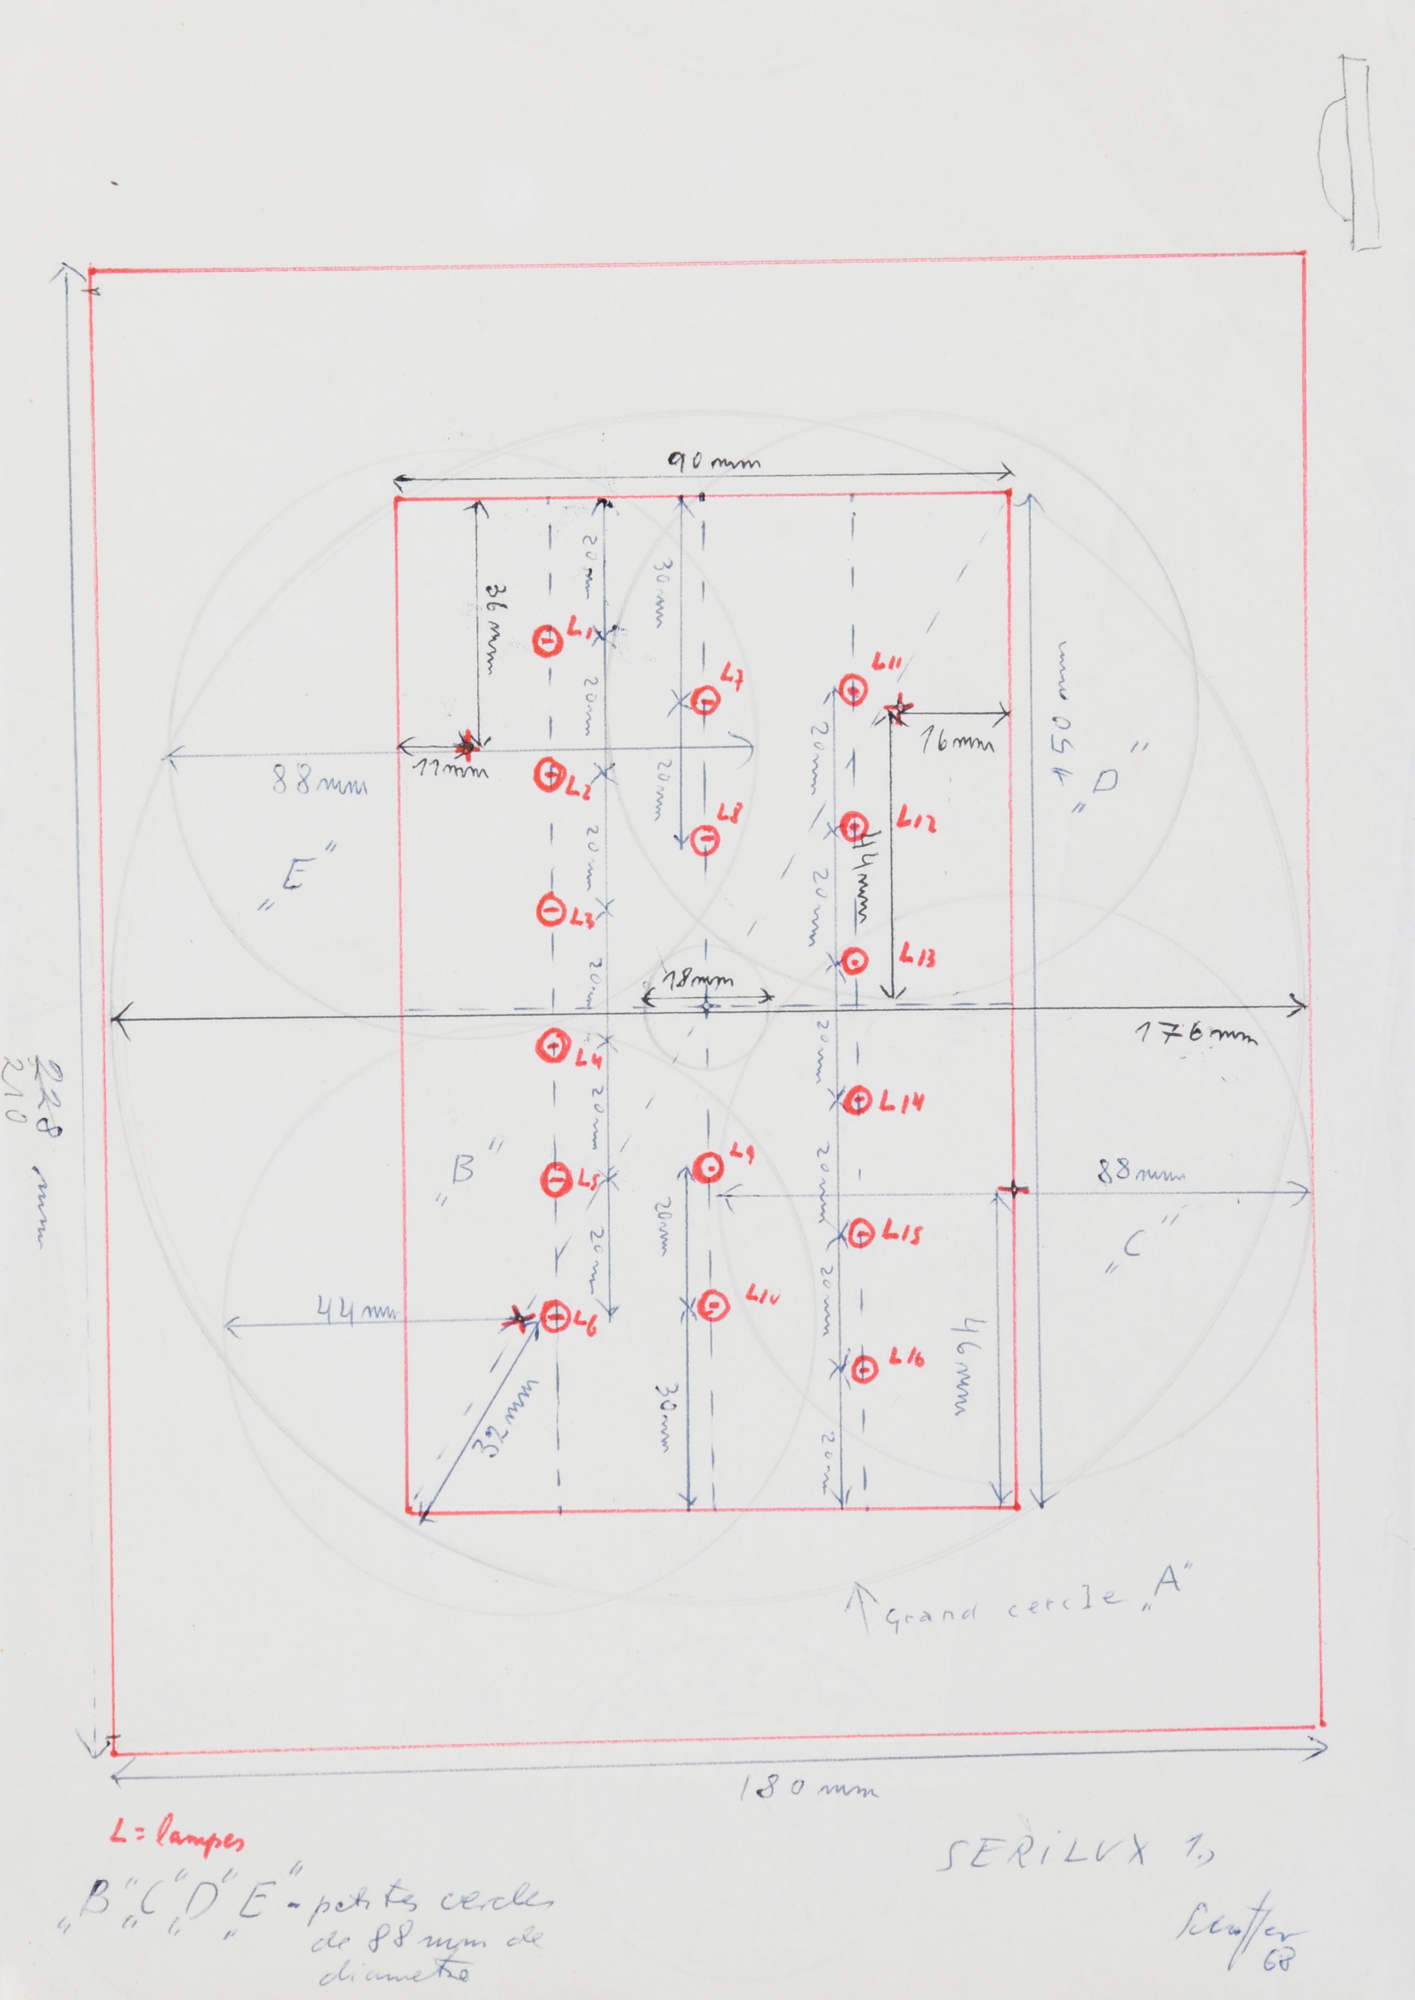 90 mm
20 mm
30 mm
36 mm
L1
L7
L11
20 mm
150 mm
16 mm
11 mm
88 mm
L2
20 mm
20 mm
„D"
L8
L12
44 mm
20 mm
20 mm
„E"
L3
L13
20 mm
18 mm
176 mm
L4
20 mm
228 mm
210
20 mm
L14
„B"
L5
L9
88 mm
20 mm
20 mm
20 mm
L15
„C"
44 mm
L6
L10
20 mm
46 mm
L16
32 mm
30 mm
20 mm
Grand cercle „A"
180 mm
L = lampes
SERILUX 1.,
„B" „C" „D" „E" - petites cercles
de 88 mm de
diametre
Schöffer
68